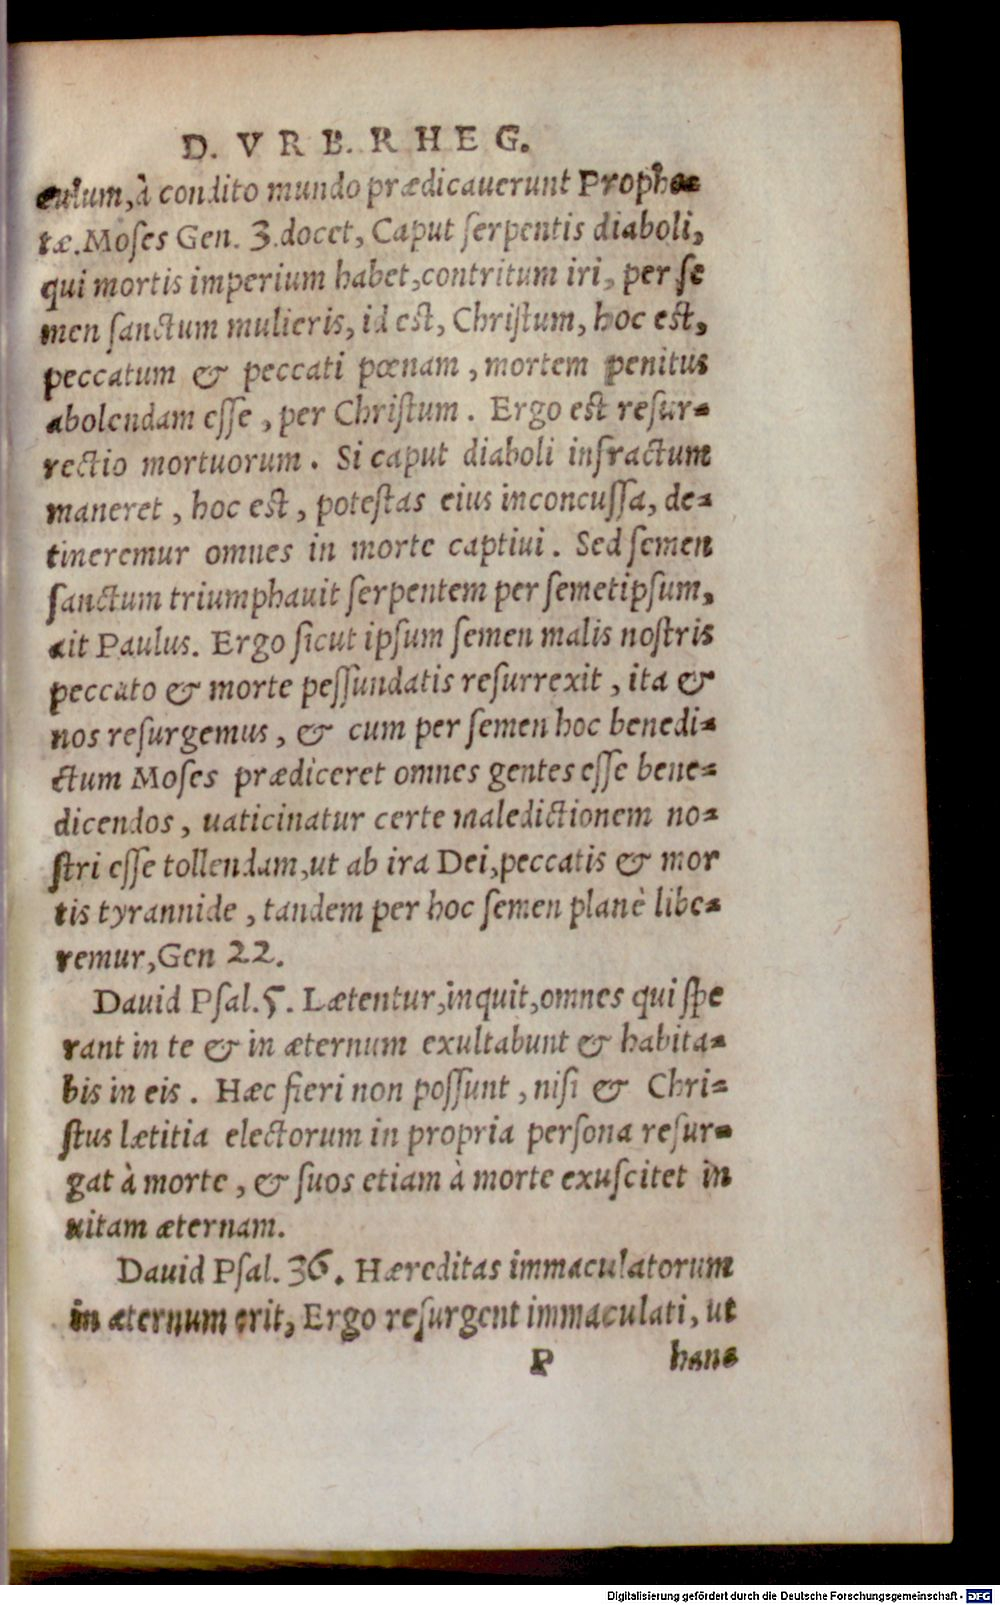 D. V R B. R H E G.
culum, à condito mundo prædicauerunt Prophe
tæ. Moſes Gen. 3. docet, Caput ſerpentis diaboli,
qui mortis imperium habet, contritum iri, per ſe
men ſanctum mulieris, id eſt, Chriſtum, hoc eſt,
peccatum & peccati pœnam, mortem penitus
abolendam eſſe, per Chriſtum. Ergo eſt reſur-
rectio mortuorum. Si caput diaboli infractum
maneret, hoc eſt, poteſtas eius inconcuſſa, de-
tineremur omnes in morte captiui. Sed ſemen
ſanctum triumphauit ſerpentem per ſemetipſum,
ait Paulus. Ergo ſicut ipſum ſemen malis noſtris
peccato & morte peſſundatis reſurrexit, ita &
nos reſurgemus, & cum per ſemen hoc benedi-
ctum Moſes prædiceret omnes gentes eſſe bene-
dicendos, uaticinatur certe maledictionem no-
ſtri eſſe tollendam, ut ab ira Dei, peccatis & mor
tis tyrannide, tandem per hoc ſemen planè libe-
remur, Gen 22.
Dauid Pſal. 5. Lætentur, inquit, omnes qui ſpe
rant in te & in æternum exultabunt & habita-
bis in eis. Hæc fieri non poſſunt, niſi & Chri-
ſtus lætitia electorum in propria perſona reſur-
gat à morte, & ſuos etiam à morte exuſcitet in
uitam æternam.
Dauid Pſal. 36. Hæreditas immaculatorum
in æternum erit, Ergo reſurgent immaculati, ut
P hanc
Digitalisierung gefördert durch die Deutsche Forschungsgemeinschaft - DFG